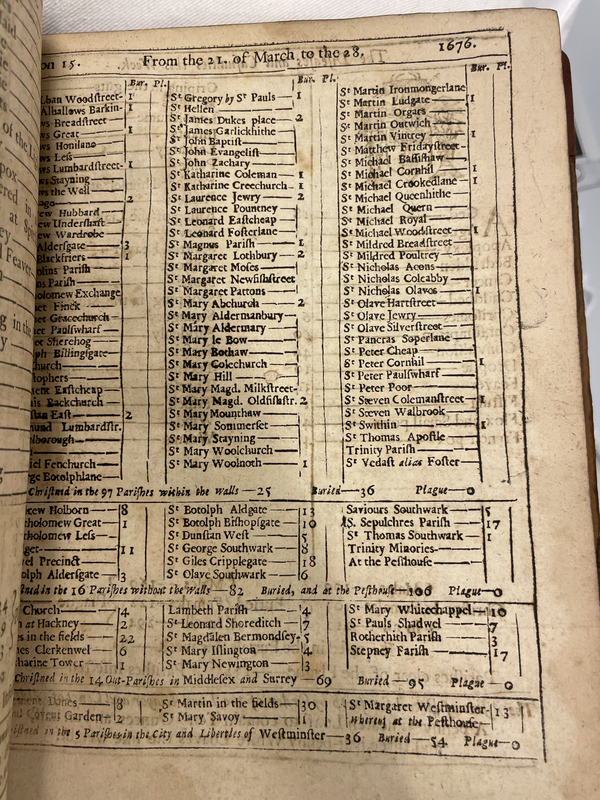 on 15. From the 21. of March to the 28. 1676.
Bur. Pl.
Alban Woodſtreet- 1
Alhallows Barkin- 1
ws Breadſtreet—
ws Great— 1
ws Honilane
ws Leſs—
ws Lumbardſtreet- 1
ws Stayning—
ws the Well
ago— 2
ew Hubbard—
ew Underſhaft—
ew Wardrobe
Alderſgate— 3
Blackfriers— 1
olins Pariſh
ns Pariſh—
olomew Exchange
et Finck—
et Gracechurch—
et Paulſwharf—
et Sherehog—
ph Billingſgate—
hurch—
tophers—
ment Eaſtcheap—
is Backchurch—
ſtan Eaſt— 2
mund Lumbardſtr.
lborough—
iel Fenchurch—
rge Botolphlane—
Bur. Pl.
Sᵗ Gregory by Sᵗ Pauls— 1
Sᵗ Hellen—
Sᵗ James Dukes place— 2
Sᵗ James Garlickhithe—
Sᵗ John Baptiſt—
Sᵗ John Evangeliſt—
Sᵗ John Zachary—
Sᵗ Katharine Coleman— 1
Sᵗ Katharine Creechurch- 1
Sᵗ Laurence Jewry— 2
Sᵗ Laurence Pountney—
Sᵗ Leonard Eaſtcheap—
Sᵗ Leonard Foſterlane—
Sᵗ Magnus Pariſh— 1
Sᵗ Margaret Lothbury— 2
Sᵗ Margaret Moſes—
Sᵗ Margaret Newfiſhſtreet
Sᵗ Margaret Pattons—
Sᵗ Mary Abchurch— 2
Sᵗ Mary Aldermanbury—
Sᵗ Mary Aldermary—
Sᵗ Mary le Bow—
Sᵗ Mary Bothaw—
Sᵗ Mary Colechurch—
Sᵗ Mary Hill—
Sᵗ Mary Magd. Milkſtreet-
Sᵗ Mary Magd. Oldfiſhſtr. 2
Sᵗ Mary Mounthaw—
Sᵗ Mary Sommerſet—
Sᵗ Mary Stayning—
Sᵗ Mary Woolchurch—
Sᵗ Mary Woolnoth— 1
Bur. Pl.
Sᵗ Martin Ironmongerlane
Sᵗ Martin Ludgate— 1
Sᵗ Martin Orgars—
Sᵗ Martin Outwich—
Sᵗ Martin Vintrey— 1
Sᵗ Matthew Fridayſtreet-
Sᵗ Michael Baſſiſhaw—
Sᵗ Michael Cornhil— 1
Sᵗ Michael Crookedlane— 1
Sᵗ Michael Queenhithe
Sᵗ Michael Quern—
Sᵗ Michael Royal—
Sᵗ Michael Woodſtreet— 1
Sᵗ Mildred Breadſtreet—
Sᵗ Mildred Poultrey—
Sᵗ Nicholas Acons—
Sᵗ Nicholas Coleabby—
Sᵗ Nicholas Olaves— 1
Sᵗ Olave Hartſtreet—
Sᵗ Olave Jewry—
Sᵗ Olave Silverſtreet—
Sᵗ Pancras Soperlane—
Sᵗ Peter Cheap—
Sᵗ Peter Cornhil— 1
Sᵗ Peter Paulſwharf—
Sᵗ Peter Poor—
Sᵗ Steven Colemanſtreet— 1
Sᵗ Steven Walbrook—
Sᵗ Swithin— 1
Sᵗ Thomas Apoſtle—
Trinity Pariſh—
Sᵗ Vedaſt alias Foſter—
Chriſtned in the 97 Pariſhes within the Walls — 25 Buried—36 Plague—0
rew Holborn— 8
tholomew Great— 1
tholomew Leſs—
get— 11
el Precinct—
olph Alderſgate— 3
Sᵗ Botolph Aldgate— 13
Sᵗ Botolph Biſhopſgate— 10
Sᵗ Dunſtan Weſt— 5
Sᵗ George Southwark— 8
Sᵗ Giles Cripplegate— 18
Sᵗ Olave Southwark— 6
Saviours Southwark— 5
S. Sepulchres Pariſh— 17
Sᵗ Thomas Southwark— 1
Trinity Minories—
At the Peſthouſe—
ned in the 16 Pariſhes without the Walls — 82 Buried, and at the Peſthouſe—106 Plague—0
Church— 4
n at Hackney— 2
es in the fields— 22
mes Clerkenwel— 6
tharine Tower— 1
Lambeth Pariſh— 4
Sᵗ Leonard Shoreditch— 7
Sᵗ Magdalen Bermondſey- 5
Sᵗ Mary Iſlington— 4
Sᵗ Mary Newington— 3
Sᵗ Mary Whitechappel— 10
Sᵗ Pauls Shadwel— 7
Rotherhith Pariſh— 3
Stepney Pariſh— 17
Chriſtned in the 14 Out-Pariſhes in Middleſex and Surrey — 69 Buried— 95 Plague —0
ment Danes— 8
Covent Garden— 2
Sᵗ Martin in the fields— 30
Sᵗ Mary Savoy— 1
Sᵗ Margaret Weſtminſter- 13
whereof at the Peſthouſe—
ſtned in the 5 Pariſhes in the City and Liberties of Weſtminſter — 36 Buried — 54 Plague—0